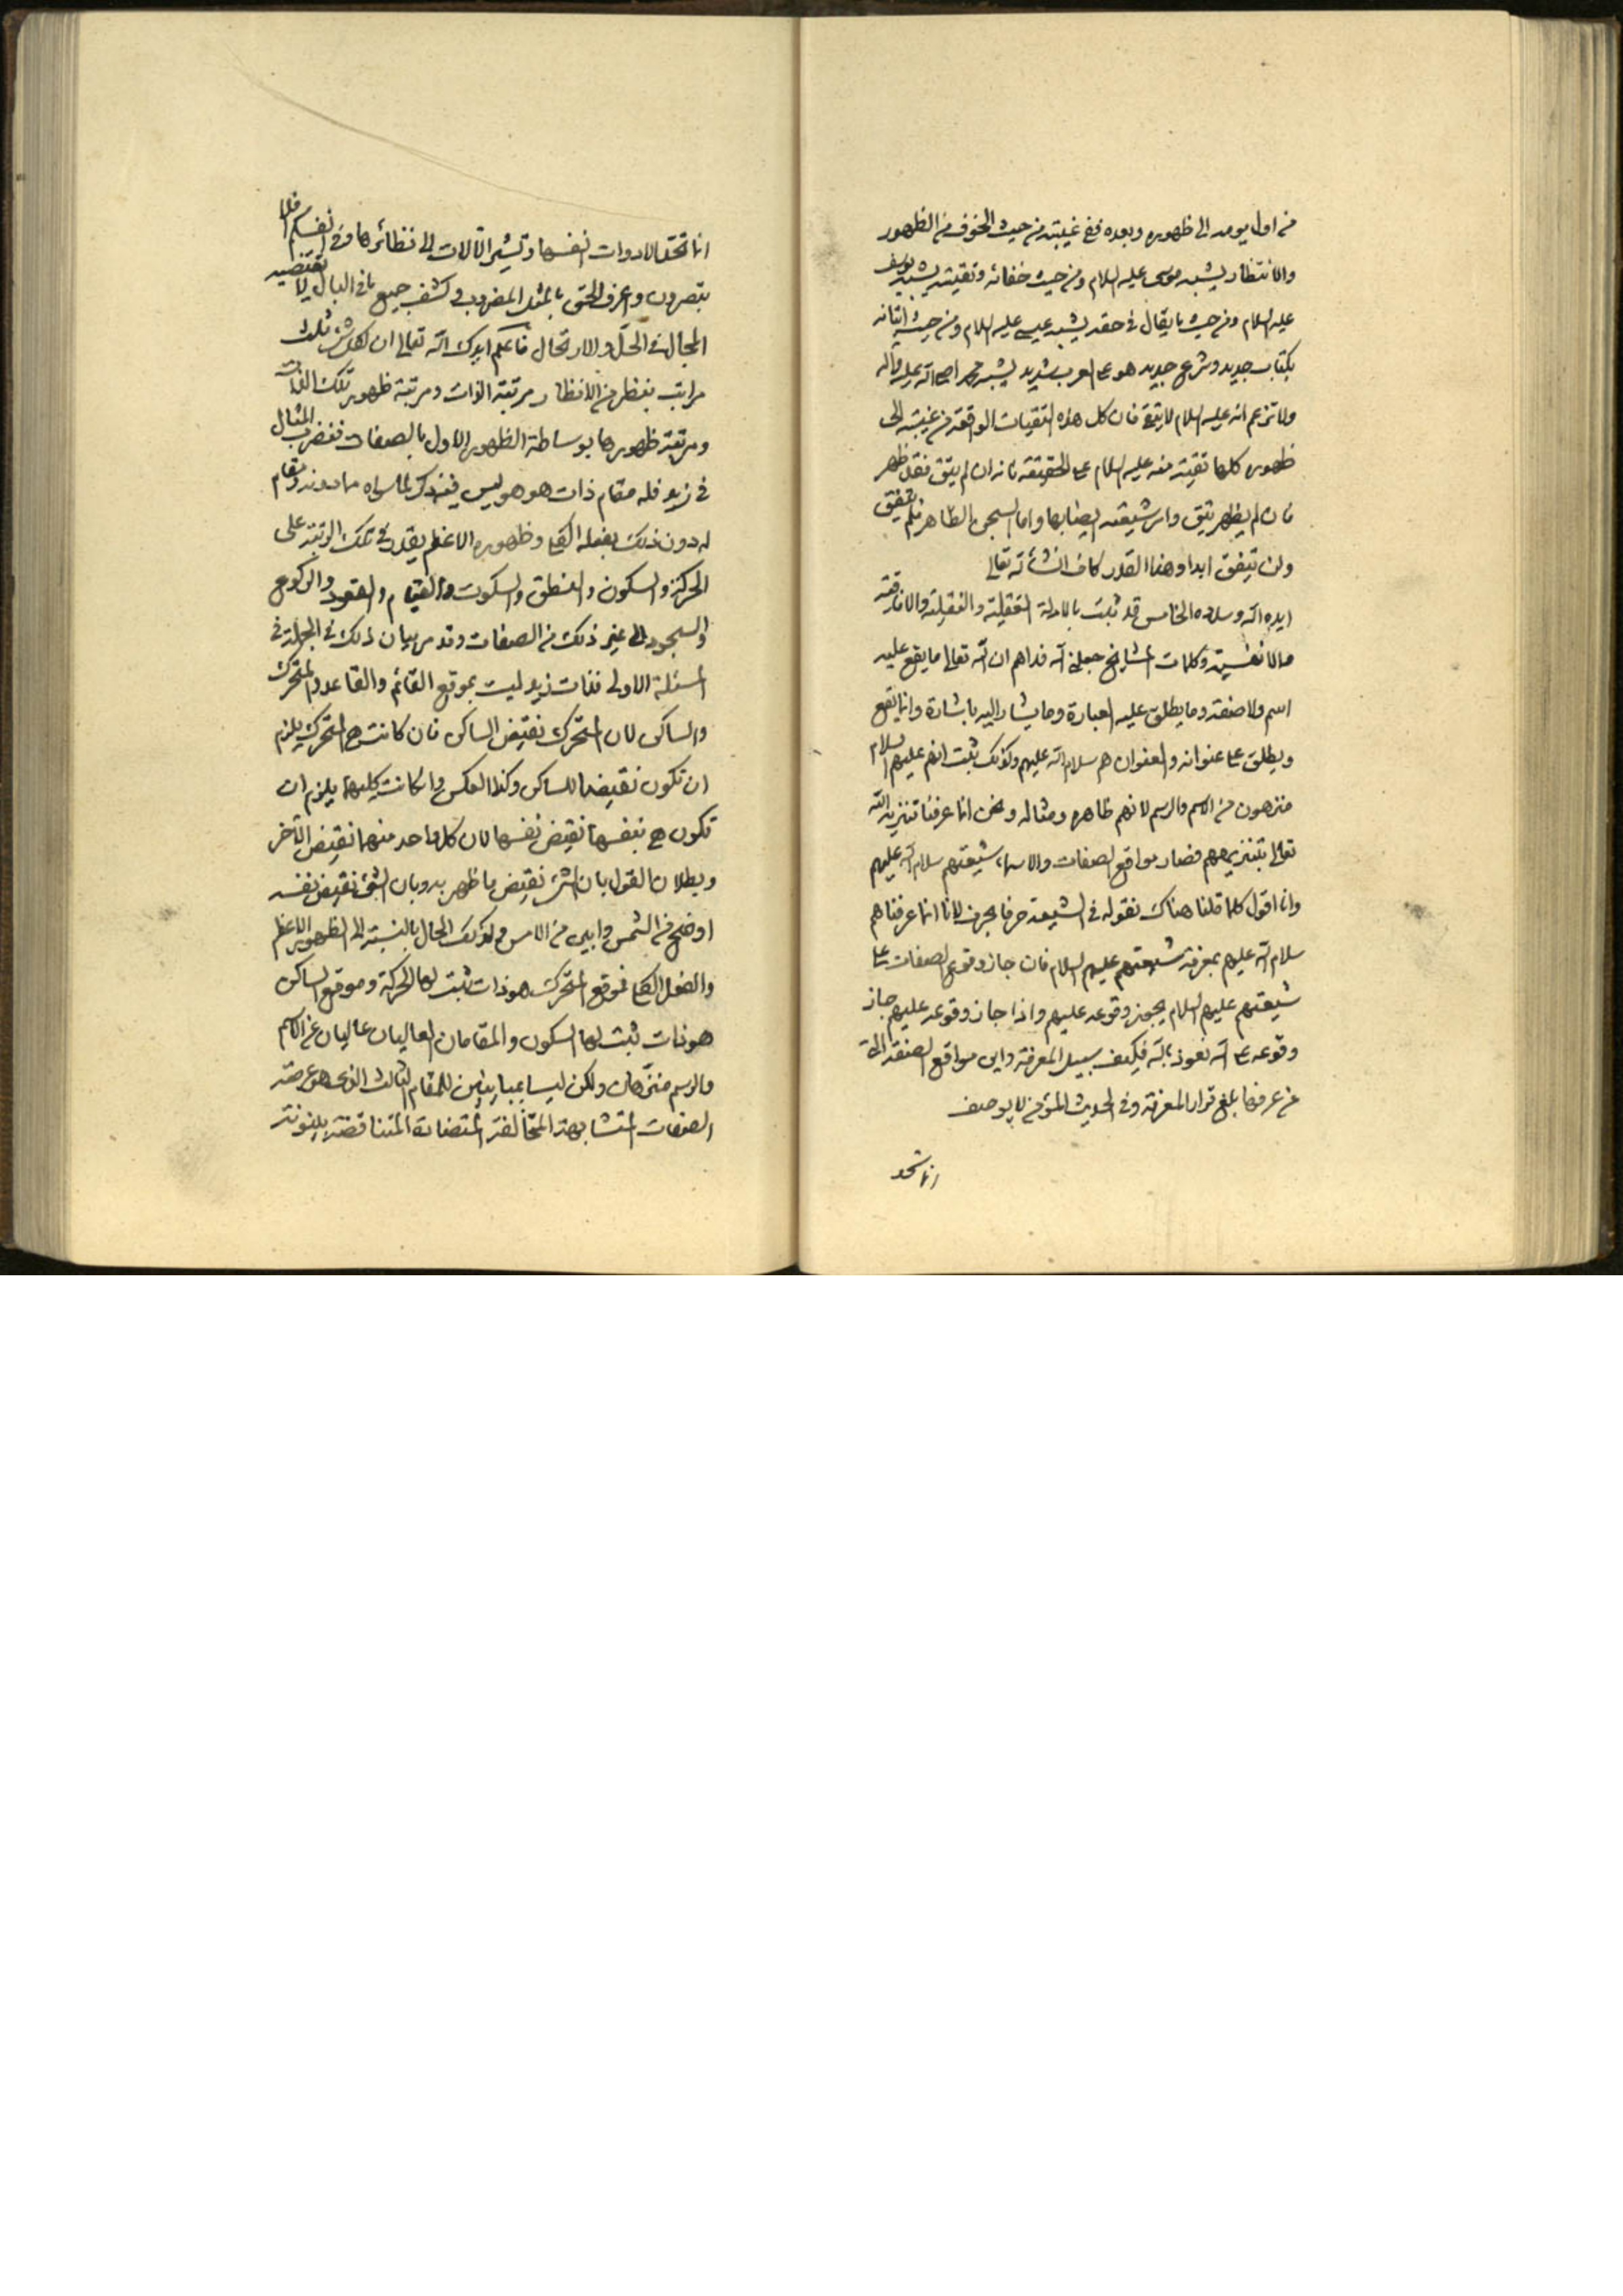 من اول يومه الى ظهوره وبعده ففي غيبته من حيث الخوف من الظهور
والانتظار يشبه موسى عليه السلام ومن حيث خفائه وتقيته يشبه يوسف
عليه السلام ومن حيث ما يقال في حقه يشبه عيسى عليه السلام ومن حيث اتيانه
بكتاب جديد وشرع جديد هو على العرب شديد يشبه محمدا صلى الله عليه وآله
ولا تزعم انه عليه السلام لا يتقي فان كل هذه التقيات الواقعة من غيبته الى
ظهوره كلها تقية منه عليه السلام على الحقيقة فانه ان لم يتق فقد ظهر
فان لم يظهر يتق وامر شيعته ايضا بها واما السجن الظاهر فلم يتفق
ولن يتفق ابدا وهذا القدر كاف انشأ الله تعالى
ايده الله وسلاده الخامس قد ثبت بالادلة العقلية والنقلية والافاقية
والانفسية وكلمات المشايخ جعلني الله فداهم ان الله تعالى ما يقع عليه
اسم ولا صفة وما يطلق عليه العبارة وما يشار اليه باشارة وانما يقع
ويطلق على عنوانه والعنوان هم سلام الله عليهم وكذلك ثبت انهم عليهم السلام
منزهون من الاسم والرسم لانهم ظاهره ومثاله ونحن انما عرفنا تنزيه الله
تعالى بتنزيههم فصار مواقع الصفات والاسماء شيعتهم سلام الله عليهم
وانا اقول كلما قلنا هناك نقوله في الشيعة حرفا بحرف لانا انما عرفناهم
سلام الله عليهم بمعرفة شيعتهم عليهم السلام فان جاز وقوع الصفات على
شيعتهم عليهم السلام يجوز وقوعه عليهم واذا جاز وقوعه عليهم جاز
وقوعه على الله نعوذ بالله فكيف سبيل المعرفة واين مواقع الصفة التي
من عرفها بلغ قرار المعرفة وفي الحديث المؤمن لا يوصف
انما تحد
انما تحد الادوات انفسها وتشير الآلات الى نظائرها وفي انفسكم افلا
تبصرون واعرف الحق بالمثل المضروب في كشف جميع ما في البال لا يقتضيه
المجال في الحل والارتحال فاعلم ايدك الله تعالى ان لكل شئ ثلث
مراتب بنظر من الانظار مرتبة الذات ومرتبة ظهور تلك الذات
ومرتبة ظهورها بوساطة الظهور الاول بالصفات فنضرب المثال
في زيد فله مقام ذات هو هو ليس فيه ذكر لما سواه مما دونه ومقام
له دون ذلك بفعله الكلي وظهوره الاعظم يقدر في تلك الرتبة على
الحركة والسكون والنطق والسكوت والقيام والقعود والركوع
والسجود الى غير ذلك من الصفات وقد مر بيان ذلك في الجملة في
المسئلة الاولى فذات زيد ليست بموقع القائم والقاعد والمتحرك
والساكن لان المتحرك نقيض الساكن فان كانت هي المتحرك يلزم
ان تكون نقيضا للساكن وكذا العكس وان كانت كليهما يلزم ان
تكون هي بنفسها نقيض نفسها لان كل واحد منهما نقيض الآخر
وبطلان القول بان الشئ نقيض ما ظهر به وبان الشئ نقيض نفسه
اوضح من الشمس وابين من الامس وكذلك الحال بالنسبة الى الظهور الاعظم
والفعل الكلي فموقع المتحرك هو ذات ثبت لها الحركة وموقع الساكن
هو ذات ثبت لها السكون والمقامان العاليان عاليان عن الاسم
والرسم منزهان ولكن ليسا بمباينين للمقام الثالث الذي هو عرصة
الصفات المتشابهة المتخالفة المتضادة المتناقضة بينونة